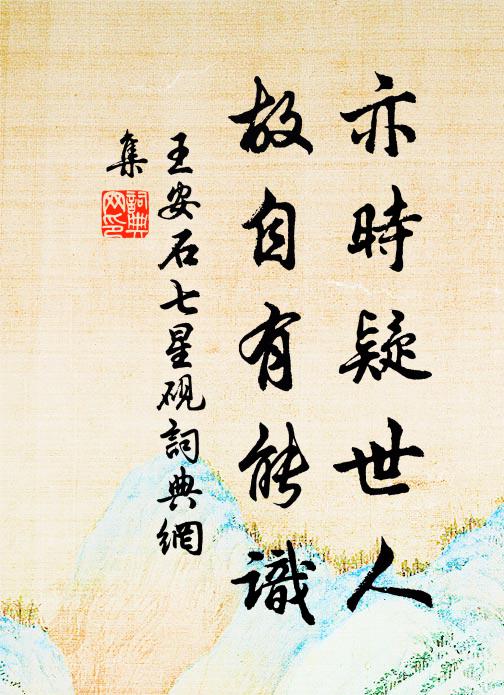 亦時疑世人
故自有能識
王安石七星砚詞典網
集
詞典
网印